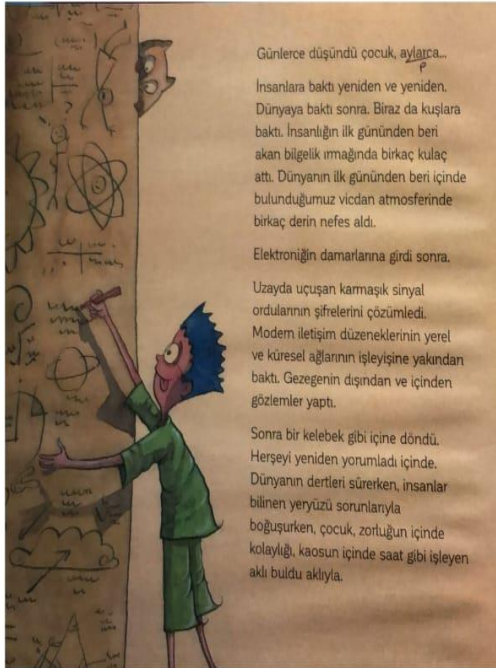 Günlerce düşündü çocuk, aylarca...
İnsanlara baktı yeniden ve yeniden.
Dünyaya baktı sonra. Biraz da kuşlara
baktı. İnsanlığın ilk gününden beri
akan bilgelik ırmağında birkaç kulaç
attı. Dünyanın ilk gününden beri içinde
bulunduğumuz vicdan atmosferinde
birkaç derin nefes aldı.
Elektroniğin damarlarına girdi sonra.
Uzayda uçuşan karmaşık sinyal
ordularının şifrelerini çözümledi.
Modern iletişim düzeneklerinin yerel
ve küresel ağlarının işleyişine yakından
baktı. Gezegenin dışından ve içinden
gözlemler yaptı.
Sonra bir kelebek gibi içine döndü.
Herşeyi yeniden yorumladı içinde.
Dünyanın dertleri sürerken, insanlar
bilinen yeryüzü sorunlarıyla
boğuşurken, çocuk, zorluğun içinde
kolaylığı, kaosun içinde saat gibi işleyen
aklı buldu aklıyla.